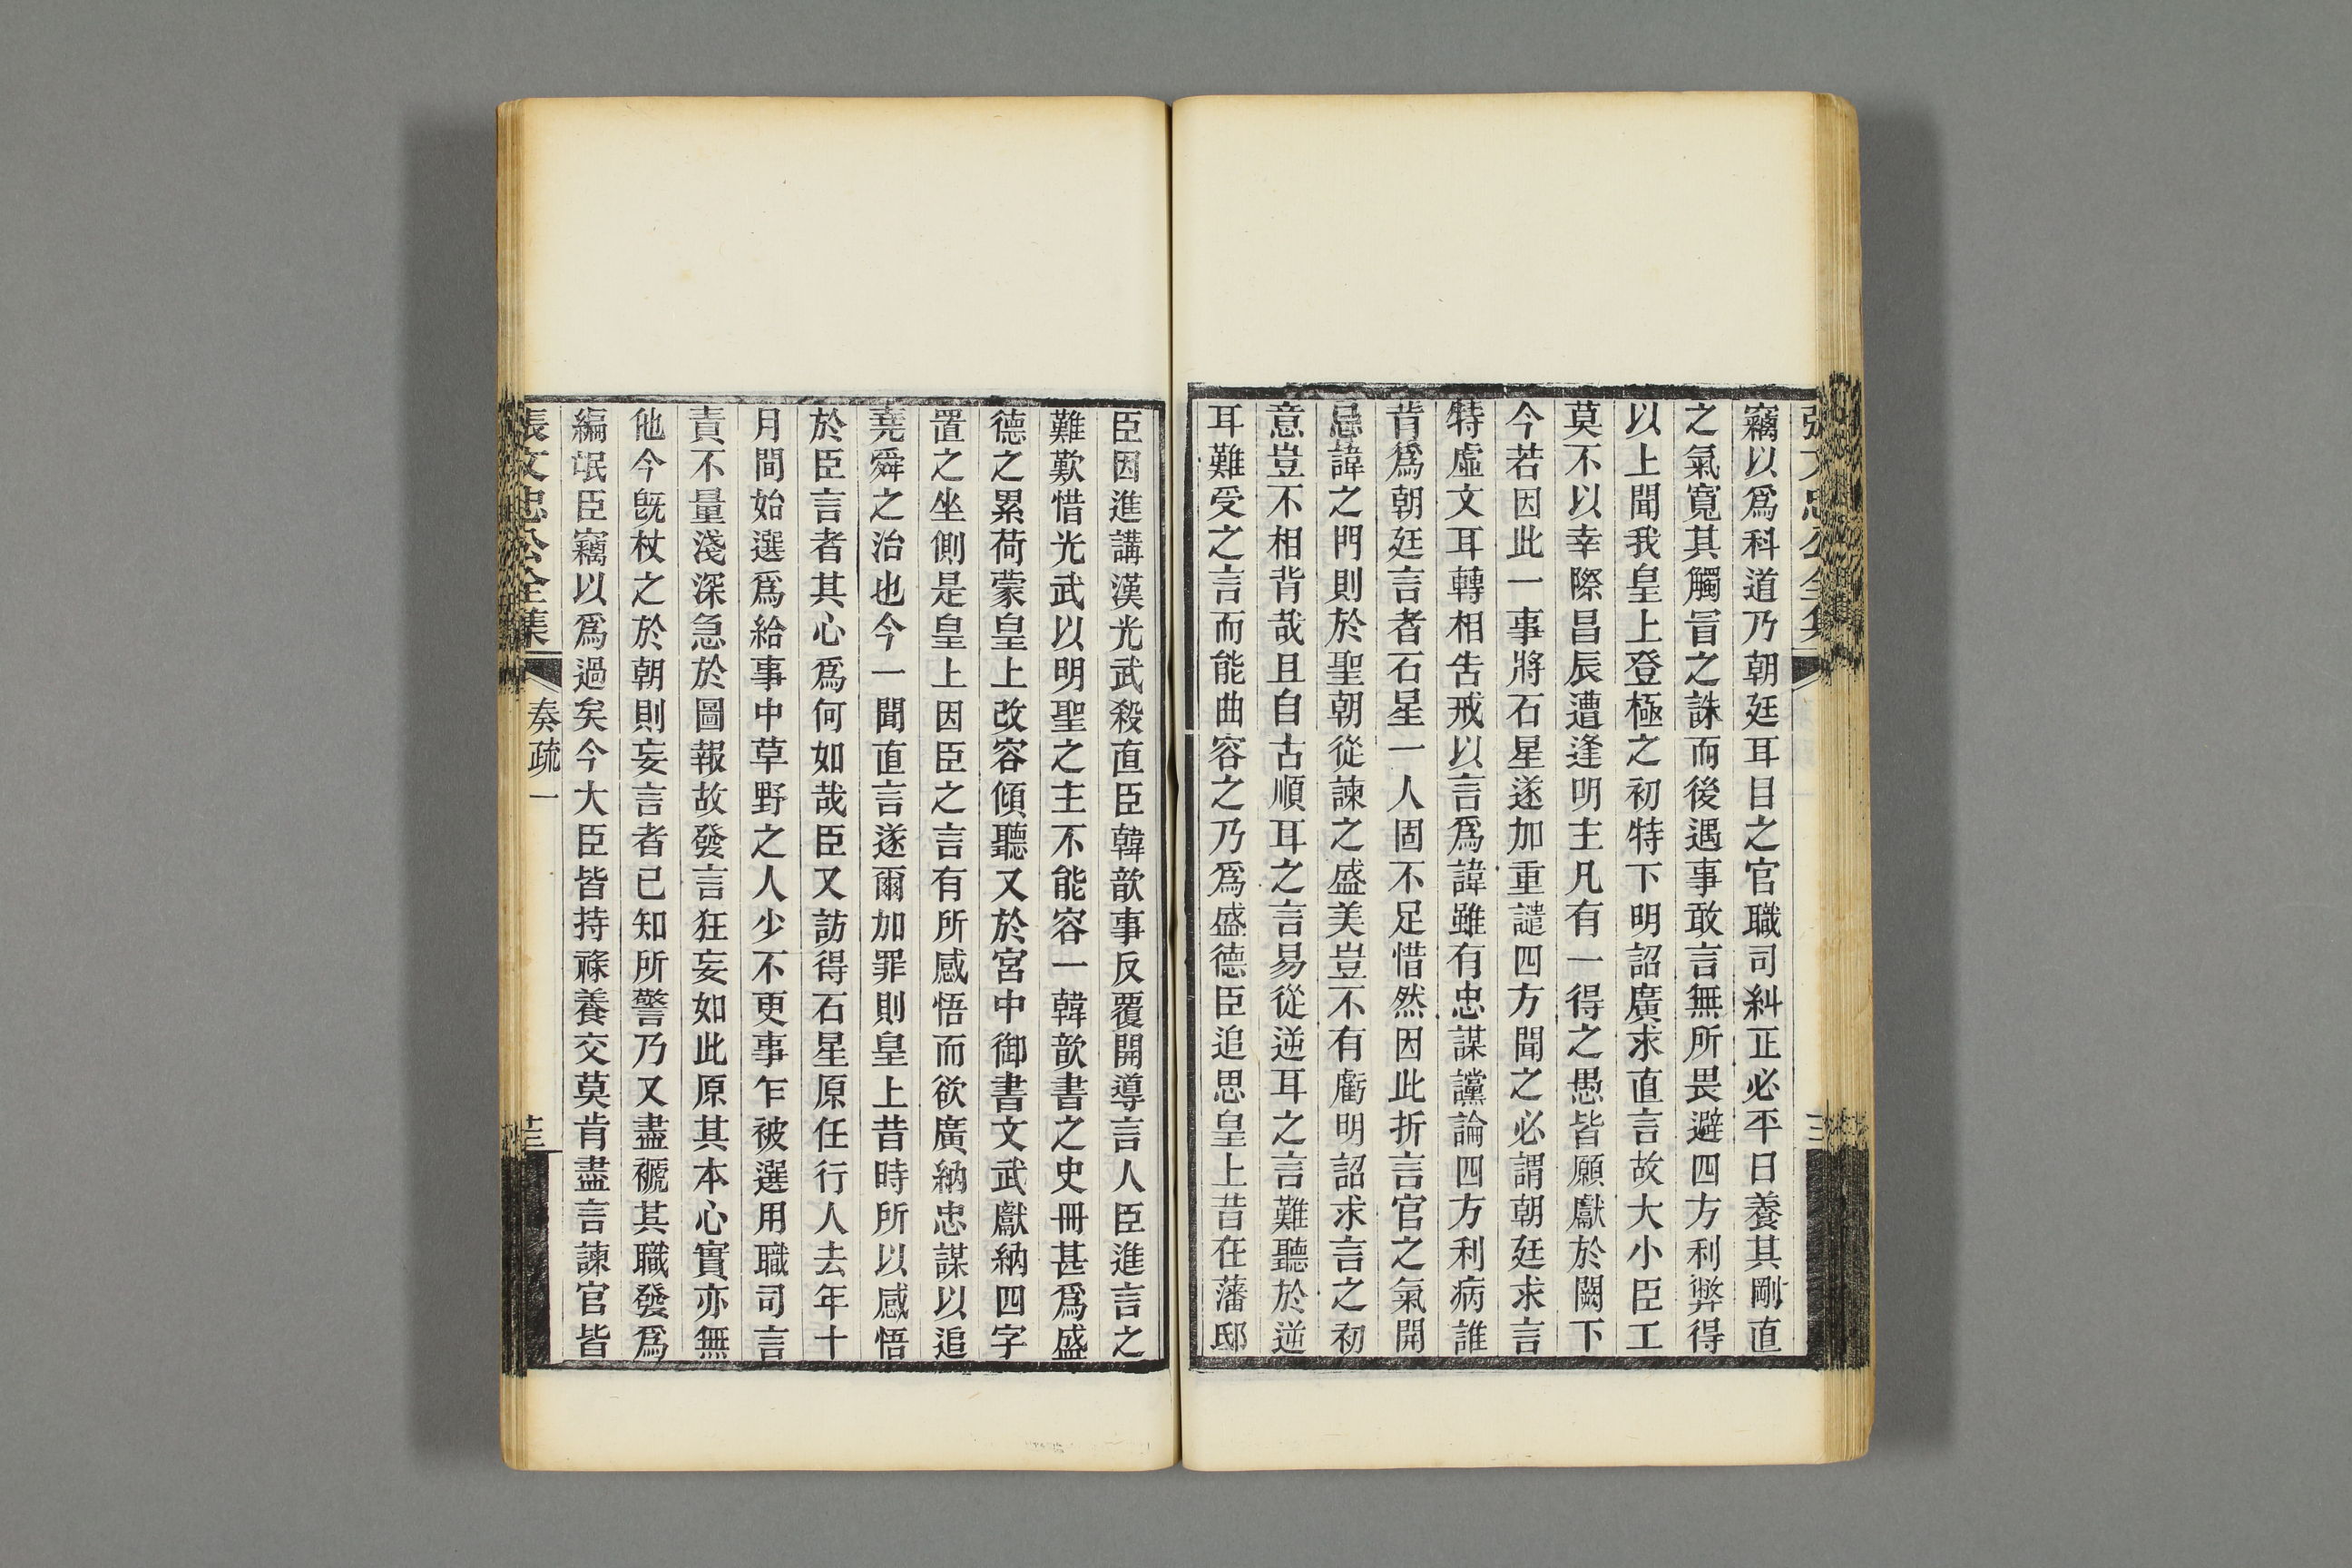 竊以爲科道乃朝廷耳目之官職司糾正必平日養其剛直
之氣寬其觸冒之誅而後遇事敢言無所畏避四方利弊得
以上聞我皇上登極之初特下明詔廣求直言故大小臣工
莫不以幸際昌辰遭逢明主凡有一得之愚皆願獻於闕下
今若因此一事將石星遂加重譴四方聞之必謂朝廷求言
特虛文耳轉相告戒以言爲諱雖有忠謀讜論四方利病誰
肯爲朝廷言者石星一人固不足惜然因此折言官之氣開
忌諱之門則於聖朝從諫之盛美豈不有虧明詔求言之初
意豈不相背哉且自古順耳之言易從逆耳之言難聽於逆
耳難受之言而能曲容之乃爲盛德臣追思皇上昔在藩邸
臣因進講漢光武殺直臣韓歆事反覆開導言人臣進言之
難歎惜光武以明聖之主不能容一韓歆書之史冊甚爲盛
德之累荷蒙皇上改容傾聽又於宮中御書文武獻納四字
置之坐側是皇上因臣之言有所感悟而欲廣納忠謀以追
堯舜之治也今一聞直言遂爾加罪則皇上昔時所以感悟
於臣言者其心爲何如哉臣又訪得石星原任行人去年十
月間始選爲給事中草野之人少不更事乍被選用職司言
責不量淺深急於圖報故發言狂妄如此原其本心實亦無
他今旣杖之於朝則妄言者已知所警乃又盡褫其職發爲
編氓臣竊以爲過矣今大臣皆持祿養交莫肯盡言諫官皆
張文忠公全集
奏疏一